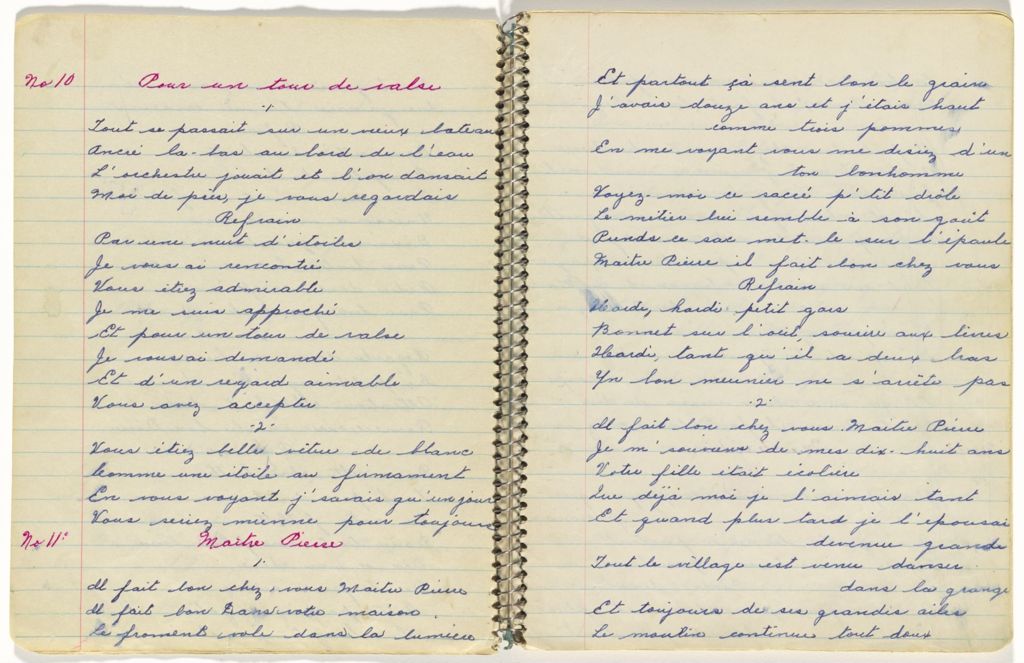 No 10 Pour un tour de valse
.1.
Tout se passait sur un vieux bateau
Ancré la-bas au bord de l'eau
L'orchestre jouait et l'on dansait
Moi de près, je vous regardais
Refrain
Par une nuit d'étoiles
Je vous ai rencontré
Vous étiez admirable
Je me suis approché
Et pour un tour de valse
Je vous ai demandé
Et d'un regard aimable
Vous avez accepter
.2.
Vous étiez belle vêtue de blanc
Comme une étoile au firmament
En vous voyant j'savais qu'un jour
Vous seriez mienne pour toujours
No 11º Maître Pierre
1.
Il fait bon chez, vous Maitre Pierre
Il fait bon Dans votre maison.
Le froment vole dans la lumière
Et partout çà sent bon le grain
J'avais douze ans et j'étais haut
comme trois pommes
En me voyant vous me disiez d'un
ton bonhomme
Voyez-moi ce sacré p'tit drôle
Le métier lui semble à son goût
Prends ce sac met-le sur l'épaule
Maitre Pierre il fait bon chez vous
Refrain
Hardi, hardi petit gars
Bonnet sur l'oeil, sourire aux lèvres
Hardi, tant qu'il a deux bras
Un bon meunier ne s'arrête pas
.2.
Il fait bon chez vous. Maitre Pierre
Je m'souviens de mes dix-huit ans
Votre fille était écolière
Que déjà moi je l'aimais tant
Et quand plus tard je l'épousai
devenue grande
Tout le village est venu danser
dans la grange
Et toujours de ses grandes ailes
Le moulin continue tout doux